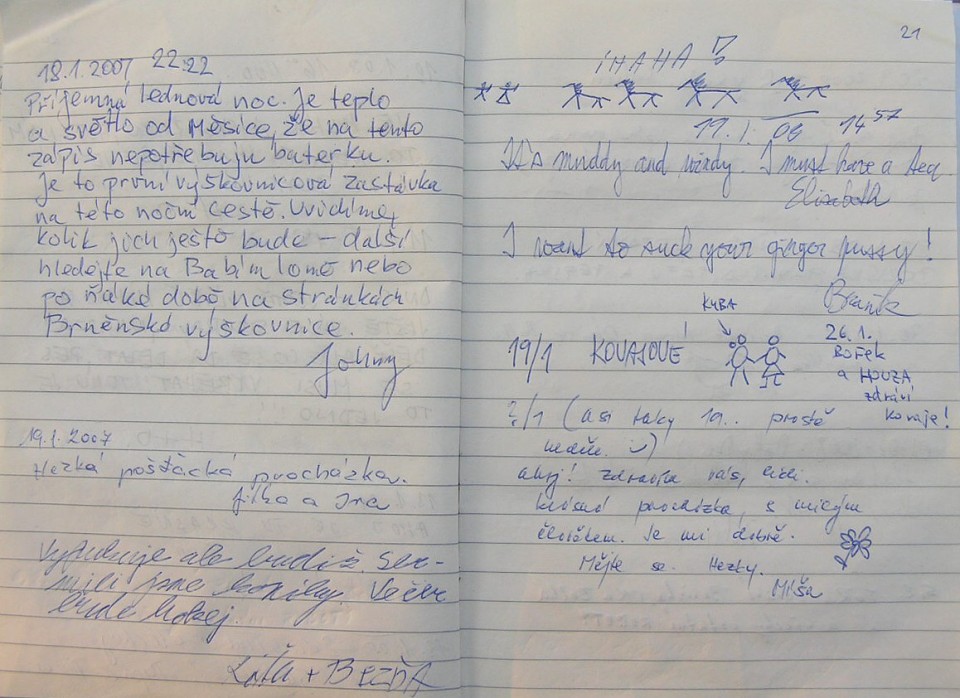 18.1.2007 22:22
Příjemná lednová noc. Je teplo
a světlo od Měsíce, že na tento
zápis nepotřebuju baterku.
Je to první výškovnicová zastávka
na této noční cestě. Uvidíme,
kolik jich ještě bude – další
hledejte na Babím lomě nebo
po ňáké době na stránkách
Brněnské výškovnice.
Johny
19.1.2007
Hezká pošťácká procházka.
Jilka a Ira
ale budiž.
jsme koníky. Večer
bude hokej.
Láťa + BezňA
21
IHAHA!
19.1.06 14 57
It's muddy and windy. I must have a tea
Elizabeth
I want to suck your ginger pussy!
Braník
KUBA
19/1 KOVAJOVÉ
26.1.
Bořek
a HOUZA
zdraví
kovaje!
?/1 (asi taky 19.. prostě
nevím. :-)
ahoj! Zdravím vás, lidi.
krásná procházka, s milým
člověkem. Je mi dobře.
Mějte se hezky.
Míša